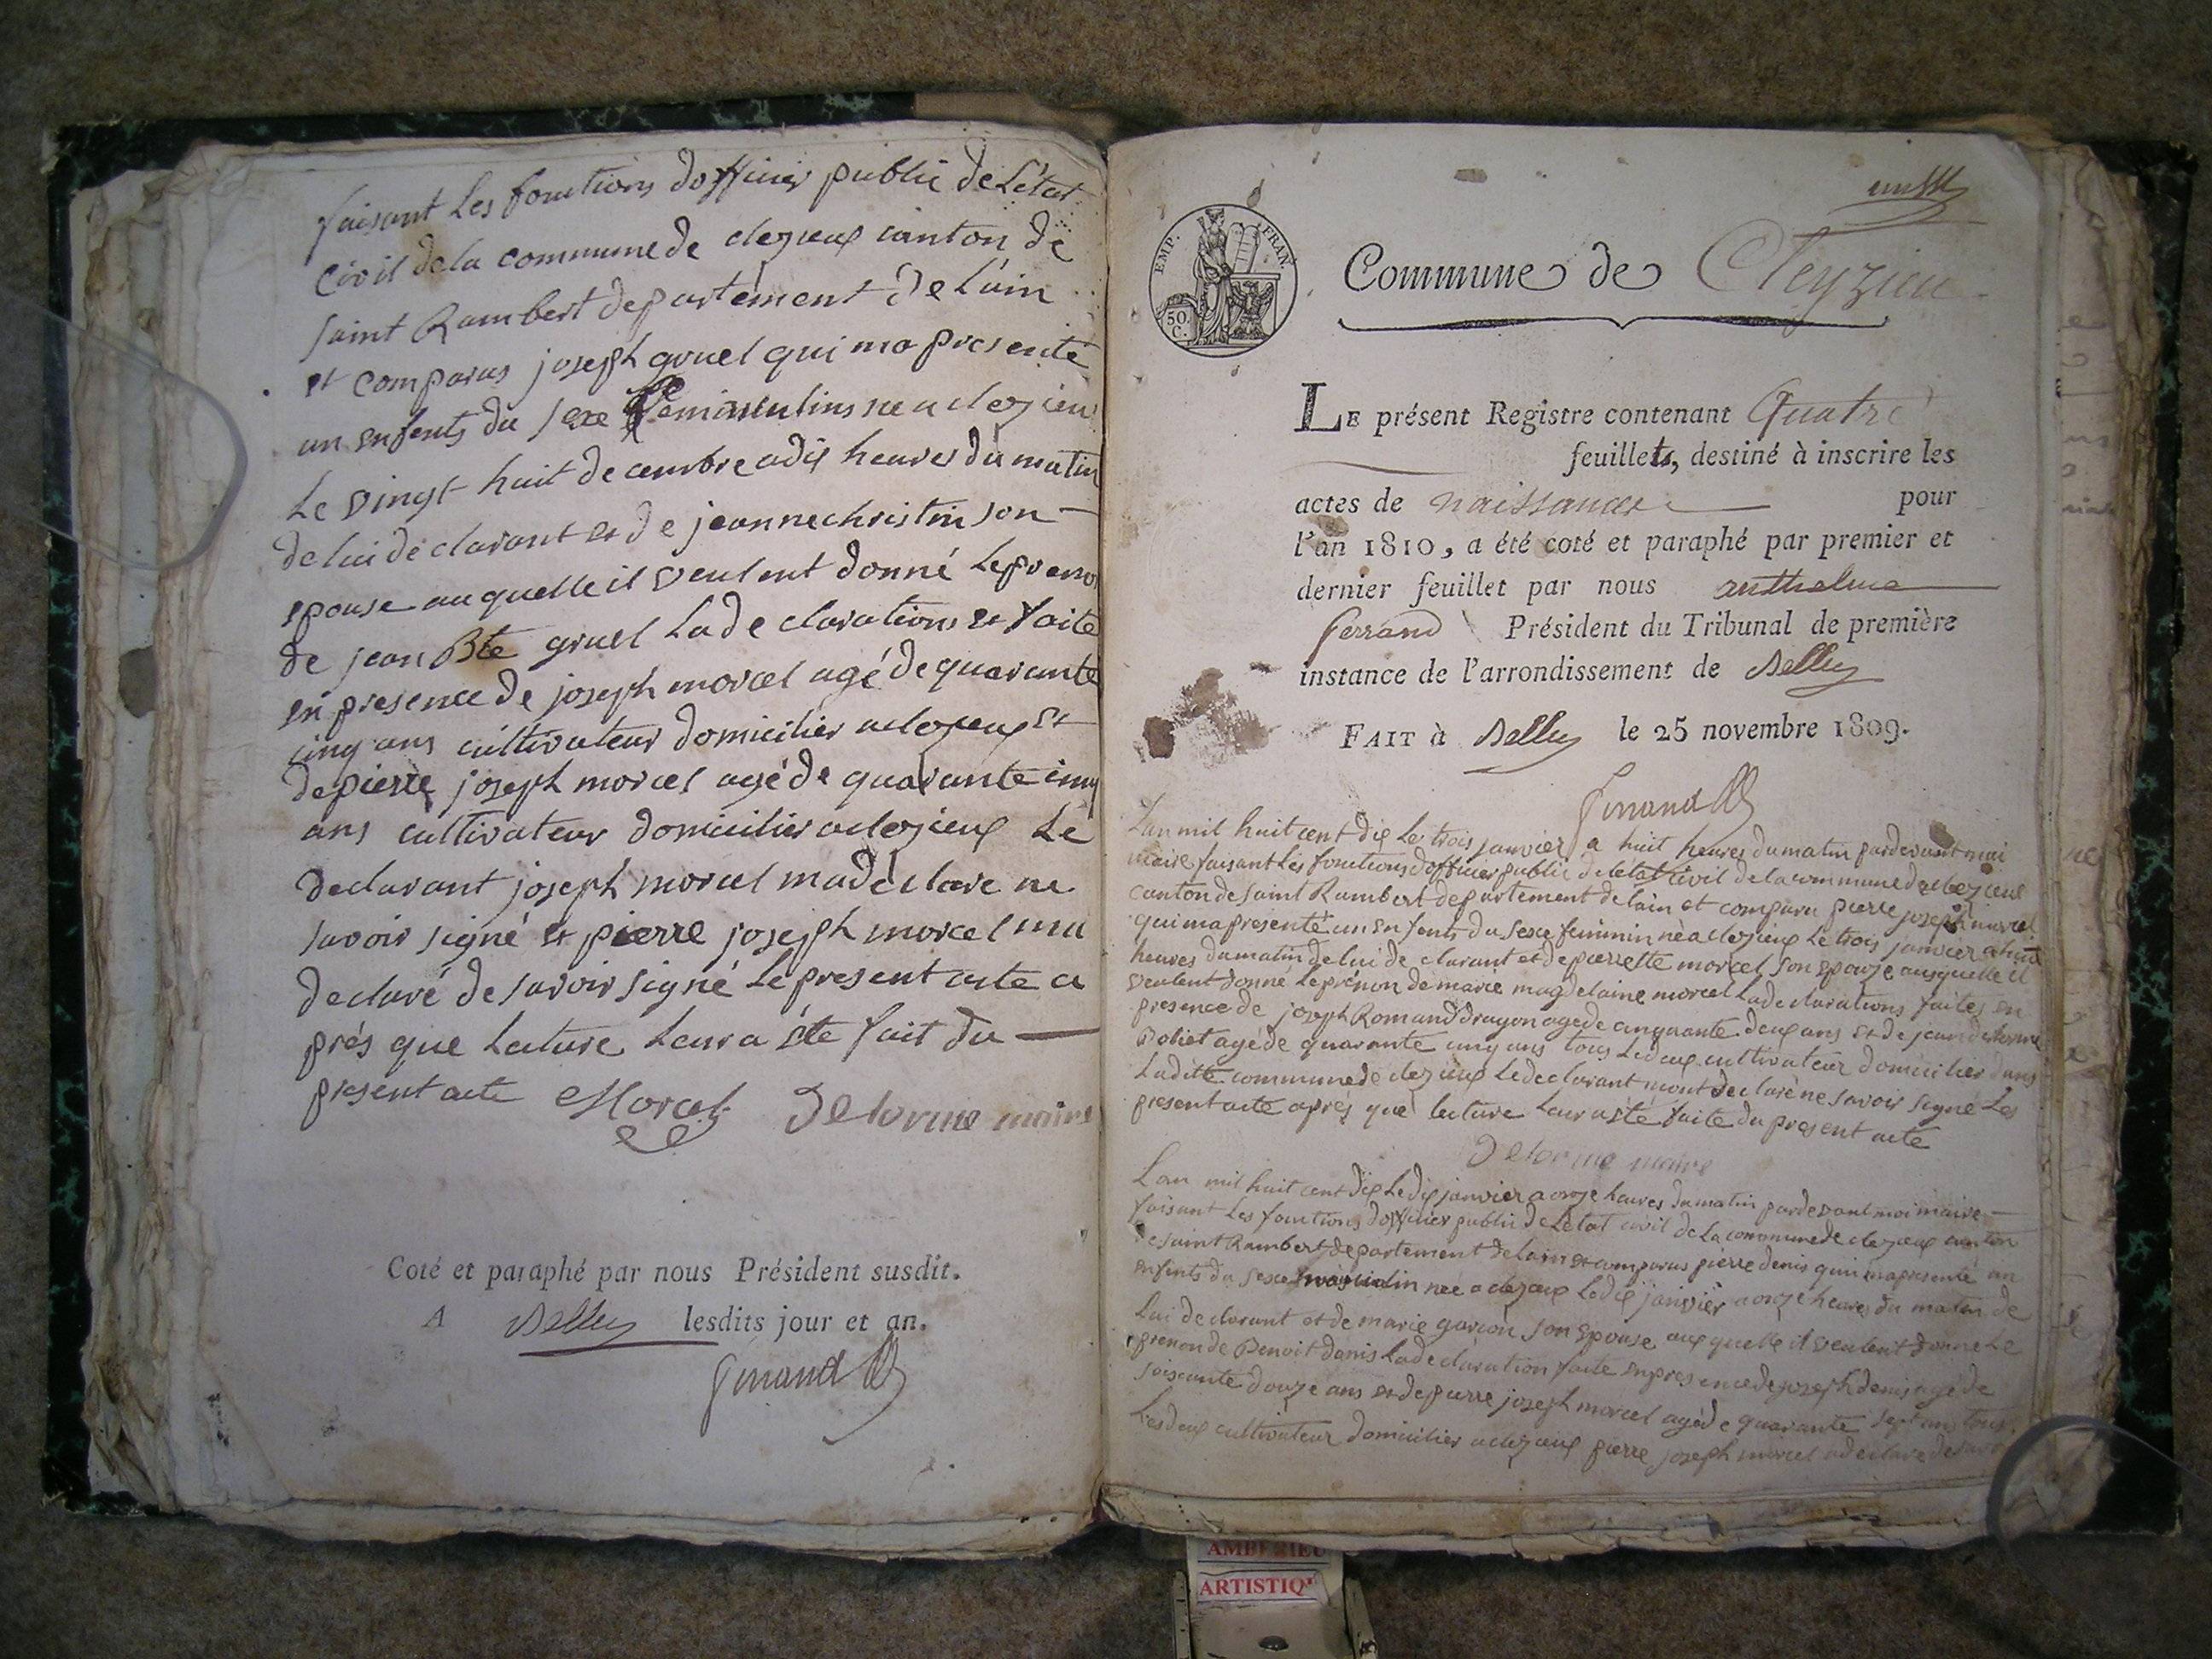 faisant Les fonctions dofficier public de Létat
civil de la commune de clezieux canton de
saint Rambert departement de L'ain
et comparus joseph gruel qui ma presenté
un enfents du sexe masculins ne a clezieu
Le vingt huit decembre a dix heures du matin
de lui declarant et de jeanne christin son
epouse au quelle il veulent donné Le prenon
de jean Bte gruel La declarations et faite
en presence de joseph morcel agé de quarante
cinq ans cultivateur domicilier a clezieux et
de pierre joseph morcel agé de quarante cinq
ans cultivateur domicilier a clezieux Le
declarant joseph morcel ma declare ne
savoir signé et pierre joseph morcel ma
declaré de savoir signé Le present acte a
prés que Lecture Leur a été fait du
present acte Morcel Delorme maire
Coté et paraphé par nous Président susdit.
A Belley lesdits jour et an.
Ferrand
EMP. FRAN.
50. C.
Commune de Cleyzieu
LE présent Registre contenant Quatre
feuillets, destiné à inscrire les
actes de naissances pour
l'an 1810, a été coté et paraphé par premier et
dernier feuillet par nous anthelme
ferrand Président du Tribunal de première
instance de l'arrondissement de Belley
FAIT à Belley le 25 novembre 1809.
Ferrand
Lan mil huit cent dix Le trois janvier a huit heures du matin pardevant moi
maire faisant Les fonctions dofficier public de létat civil de la commune de clezieux
canton de saint Rambert departement de lain et comparu pierre joseph morcel
qui ma presenté un enfents du sexe feminin né a clezieux Le trois janvier a huit
heures du matin de lui declarant et de pierrette morcel son epouze ausquelle il
veulent donné Le prénon de marie magdelaine morcel La declarations faites en
presence de joseph Romand dragon age de cinquante deux ans et de jean delorme
Boliet agé de quarante cinq ans tous Ledeux cultivateur domicilier dans
Ladite commune de clezieux Le declarant mont declaré ne savoir signé Les
present acte aprés que lecture leur a été faite du present acte
Delorme maire
Lan mil huit cent dix Le dix janvier a onze heures du matin pardevant moi maire
faisant Les fonctions dofficier public de Létat civil de La commune de clezieux canton
de saint Rambert departement de lain et comparus pierre denis qui ma presenté un
enfents du sexe masculin née a clezieux Le dix janvier a onze heures du matin de
Lui declarant et de marie garcon son epouse aux quelle il veulent donné Le
prenon de Benoit denis La declaration faite en presence de joseph denis agé de
soixante douze ans et de pierre joseph morcel agé de quarante sept ans tous
Les deux cultivateur domicilier a clezieux pierre joseph morcel a declare de savoir
AMBERIEU
ARTISTIQ